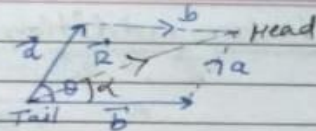 b
Head
a
R
a
θ
α
Tail
b